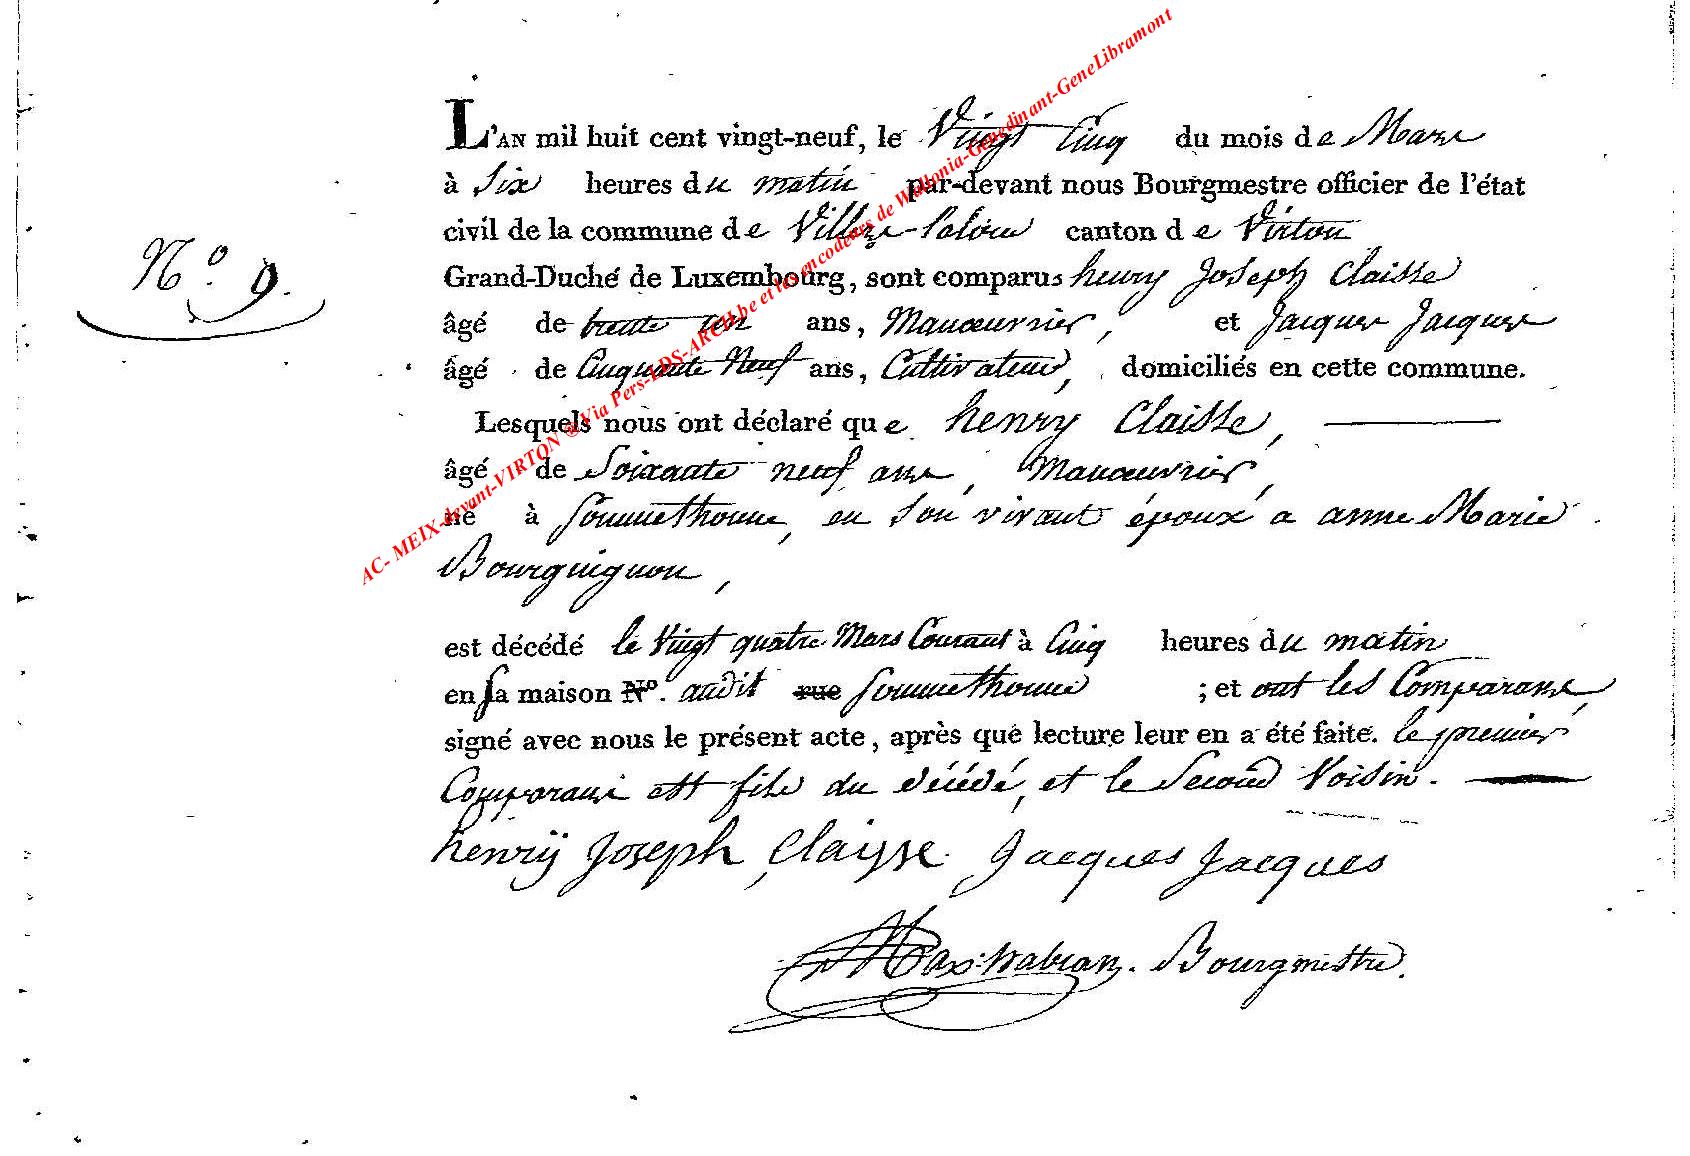 L'AN mil huit cent vingt-neuf, le Vingt Cinq du mois de Mars
à Six heures du matin par-devant nous Bourgmestre officier de l'état
civil de la commune de Villers-laloue canton de Virton
N.° 9.
Grand-Duché de Luxembourg, sont comparus henry Joseph Claisse
âgé de trente six ans, Manœuvrier, et Jacques Jacques
âgé de Cinquante Neuf ans, Cultivateur, domiciliés en cette commune.
Lesquels nous ont déclaré que henry Claisse,
âgé de Soixante neuf ans, Manœuvrier,
né à Sommethonne, en Son vivant époux a anne Marie
Bourguignon,
est décédé le Vingt quatre Mars Courant à Cinq heures du matin
en Sa maison N°. audit rue Sommethonne ; et ont les Comparans,
signé avec nous le présent acte, après que lecture leur en a été faite. le premier
Comparant est fils du décédé, et le Second Voisin.
henrÿ Joseph Claisse Jacques Jacques
Bourgmestre.
AC- MEIX-devant-VIRTON ® Via Pers-LDS-ARCH.be et les encodeurs de Wallonia-Genedinant-GeneLibramont